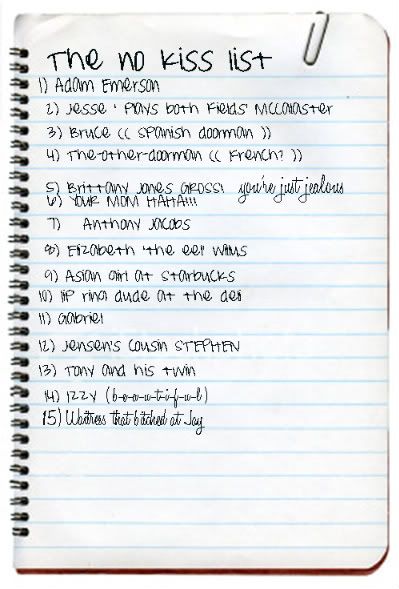 The no kiss list
1) Adam Emerson
2) Jesse ' Plays both Fields' McCalaster
3) Bruce (( Spanish doorman ))
4) The-other-doorman (( French? ))
5) Brittany Jones GROSS! you're just jealous
6) YOUR MOM HAHA!!!
7) Anthony Jacobs
8) Elizabeth 'the eel' Wims
9) Asian girl at Starbucks
10) lip ring dude at the deli
11) Gabriel
12) Jensen's cousin STEPHEN
13) Tony and his twin
14) IZZY (b-e-a-u-t-i-f-u-l)
15) Waitress that bitched at Jay